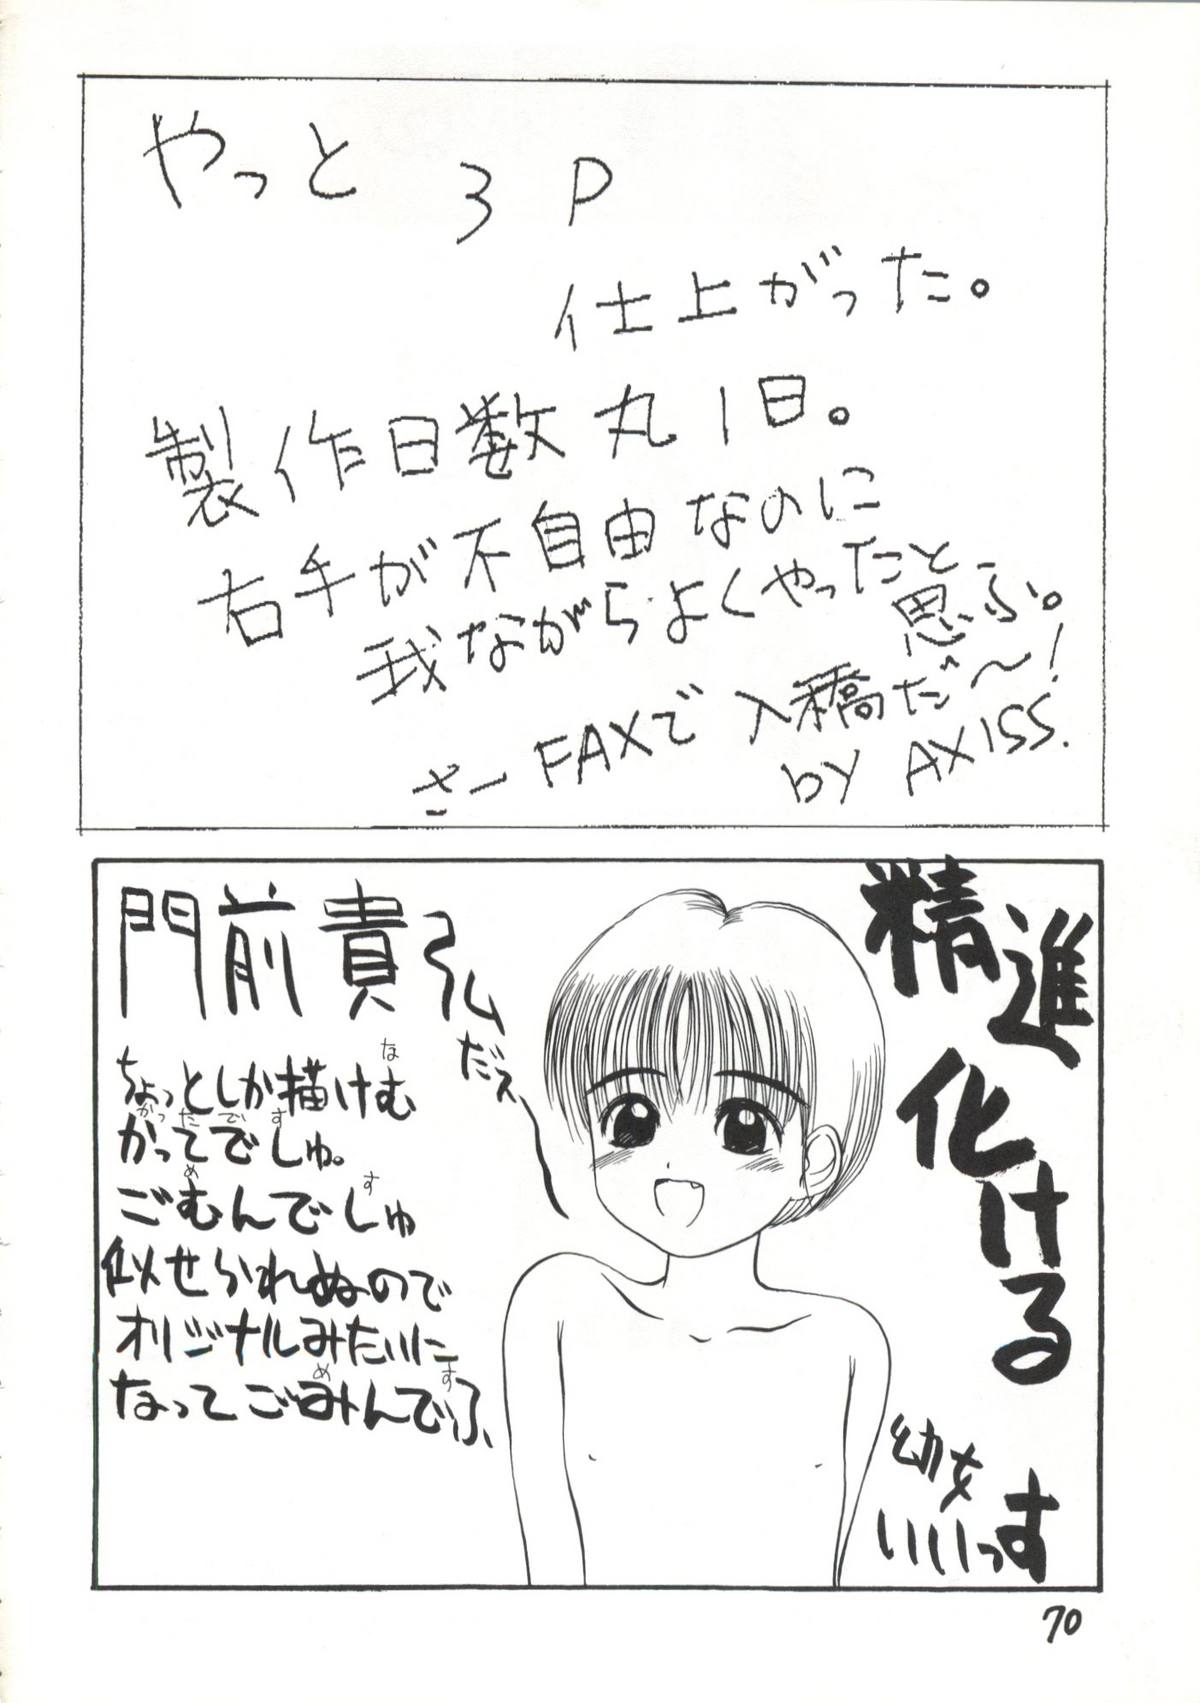 やっと 3P
仕上がった。
製作日数丸1日。
右手が不自由なのに
我ながらよくやったと
思ふ。
さーFAXで入稿だ〜！
by AXISS.
精進
化ける
幼女
いいっす
門前貴弘
だぇ
ちょっとしか描けむ
な
かってでしゅ。
かったです
ごむんでしゅ
め す
似せられぬので
オリジナルみたいに
なってごみんでふ
め す
70